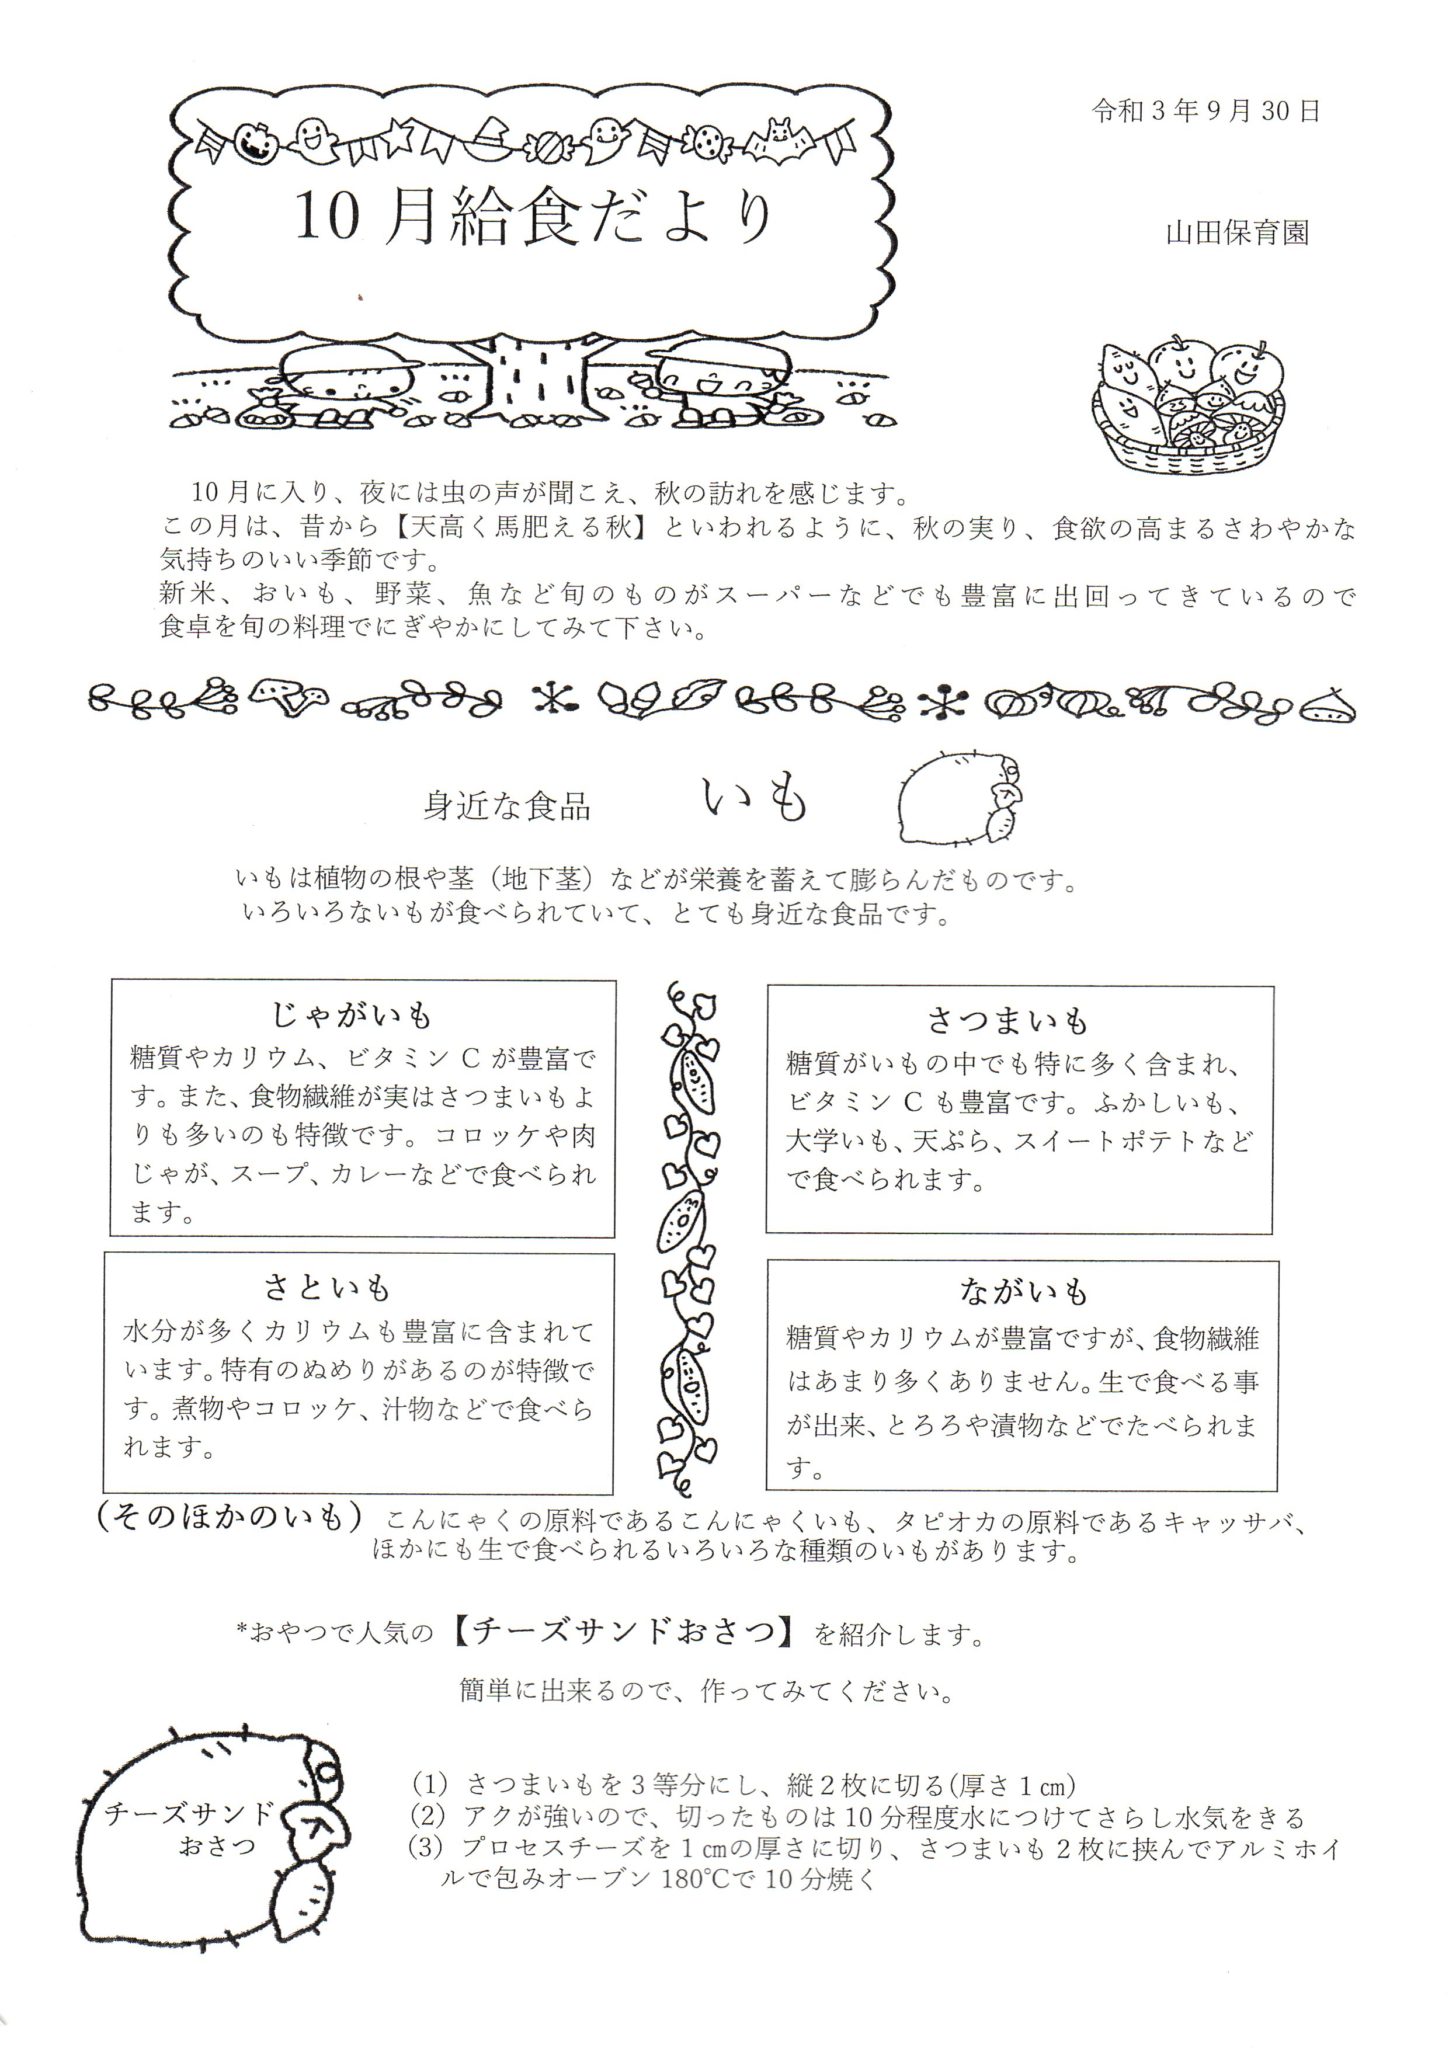 令和３年９月30日
10月給食だより
山田保育園
10月に入り、夜には虫の声が聞こえ、秋の訪れを感じます。
この月は、昔から【天高く馬肥える秋】といわれるように、秋の実り、食欲の高まるさわやかな
気持ちのいい季節です。
新米、おいも、野菜、魚など旬のものがスーパーなどでも豊富に出回ってきているので
食卓を旬の料理でにぎやかにしてみて下さい。
身近な食品　いも
いもは植物の根や茎（地下茎）などが栄養を蓄えて膨らんだものです。
いろいろないもが食べられていて、とても身近な食品です。
じゃがいも
糖質やカリウム、ビタミンCが豊富で
す。また、食物繊維が実はさつまいもよ
りも多いのも特徴です。コロッケや肉
じゃが、スープ、カレーなどで食べられ
ます。
さつまいも
糖質がいもの中でも特に多く含まれ、
ビタミンCも豊富です。ふかしいも、
大学いも、天ぷら、スイートポテトなど
で食べられます。
さといも
水分が多くカリウムも豊富に含まれて
います。特有のぬめりがあるのが特徴で
す。煮物やコロッケ、汁物などで食べら
れます。
ながいも
糖質やカリウムが豊富ですが、食物繊維
はあまり多くありません。生で食べる事
が出来、とろろや漬物などでたべられま
す。
（そのほかのいも）こんにゃくの原料であるこんにゃくいも、タピオカの原料であるキャッサバ、
ほかにも生で食べられるいろいろな種類のいもがあります。
*おやつで人気の【チーズサンドおさつ】を紹介します。
簡単に出来るので、作ってみてください。
チーズサンド
おさつ
（1）さつまいもを３等分にし、縦２枚に切る(厚さ１㎝)
（2）アクが強いので、切ったものは10分程度水につけてさらし水気をきる
（3）プロセスチーズを１㎝の厚さに切り、さつまいも２枚に挟んでアルミホイ
ルで包みオーブン180℃で10分焼く